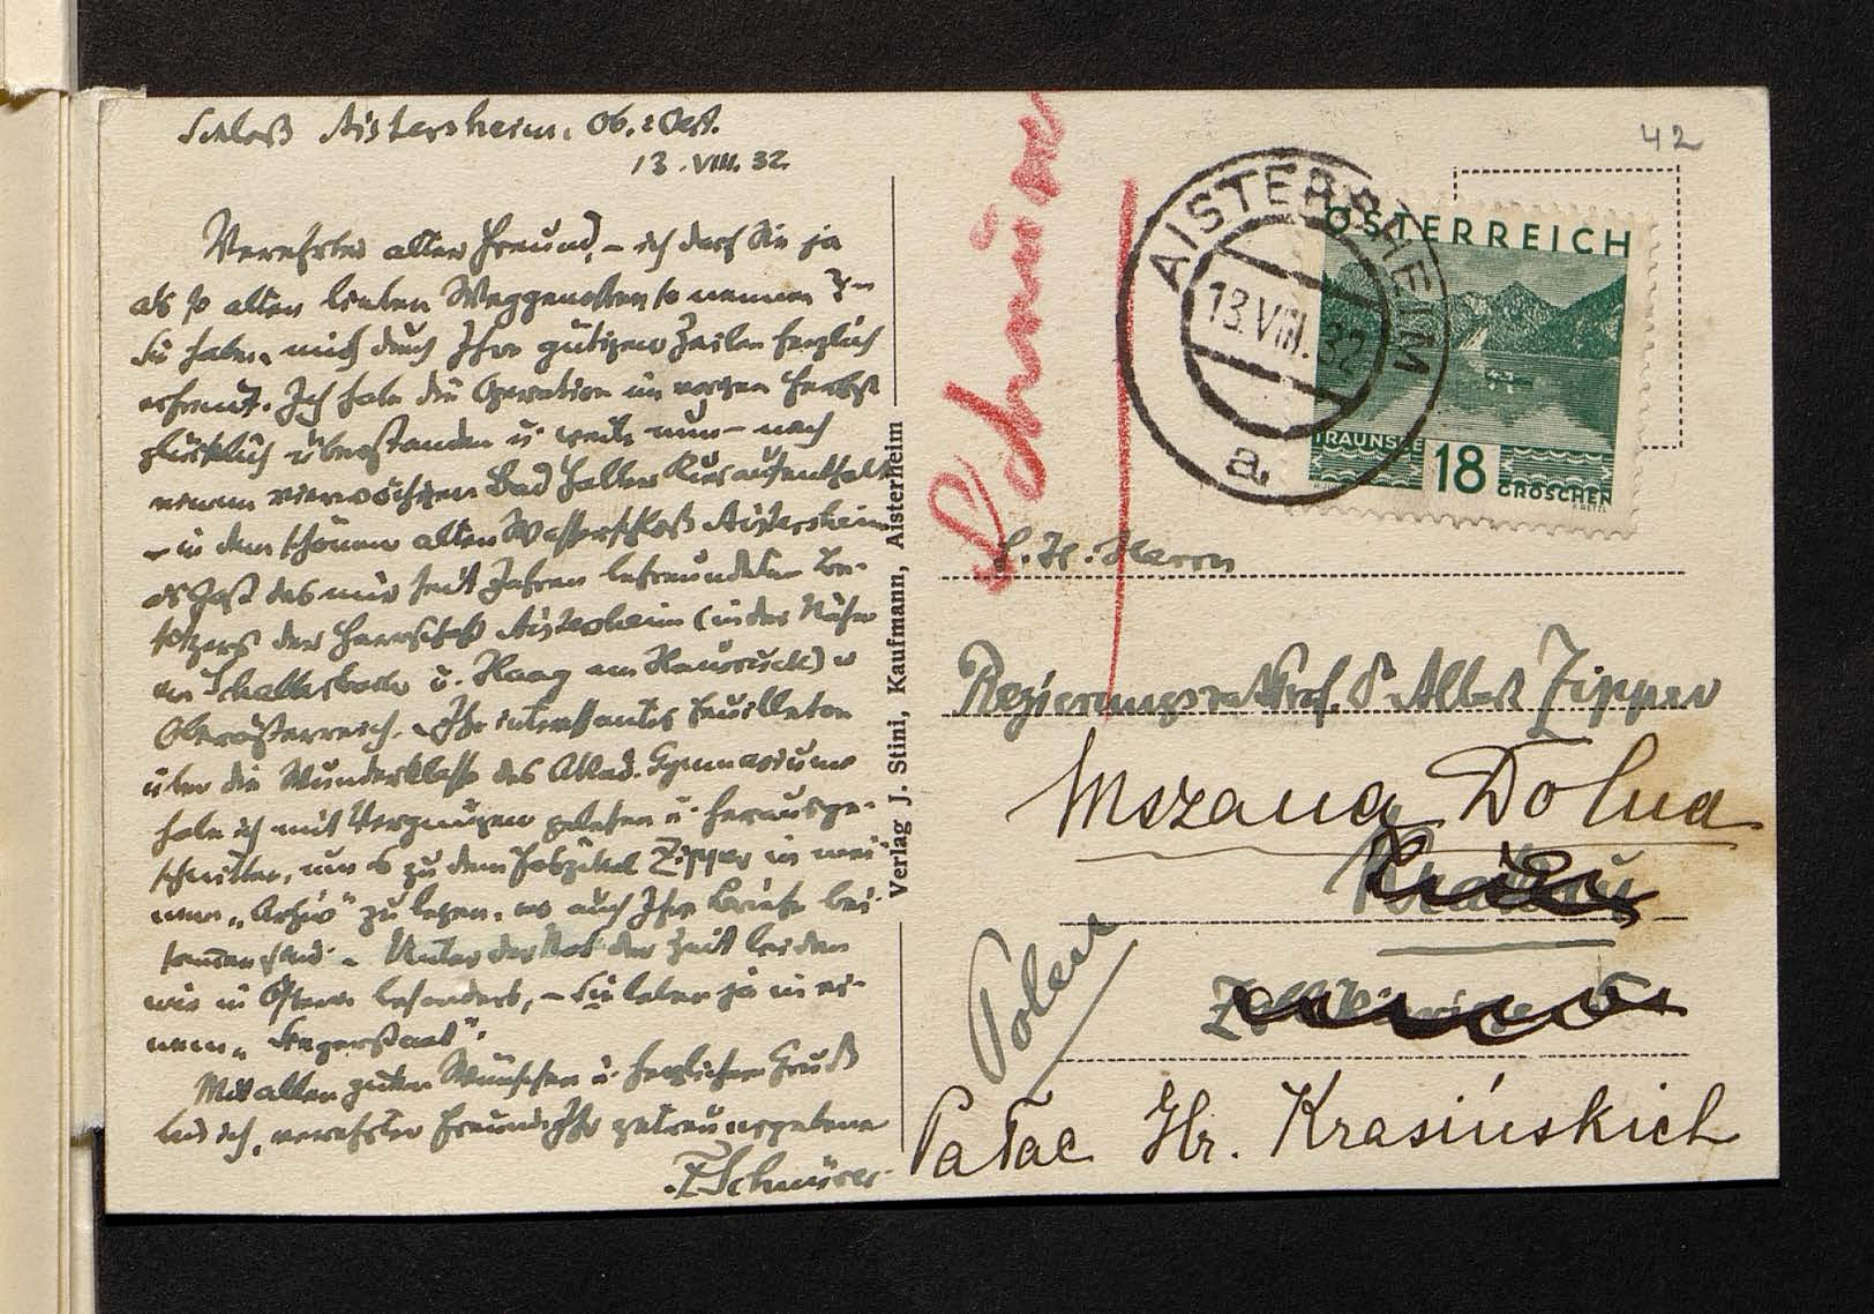 Schloß Aistersheim, Ob.: Oest.
13. VIII. 32
Verehrter alter Freund, – ich darf Sie ja
als so alten lieben Weggenossen so nennen? –
Sie haben mich durch Ihre gütigen Zeilen herzlich
erfreut. Ich habe die Operation im vorigen Herbst
glücklich überstanden u. weile nun – nach
einem vierwöchigen Bad Haller Kuraufenthalt
– in dem schönen alten Wasserschloß Aistersheim
als Gast des mir seit Jahren befreundeten Be-
sitzers der Herrschaft Aistersheim (in der Nähe
von Schallerbach u. Haag am Hausruck) in
Oberösterreich. Ihr interessantes Feuilleton
über die Wunderklasse des Akad. Gymnasiums
habe ich mit Vergnügen gelesen u. herausge-
schnitten, um es zu dem Faszikel Zipper in mei-
nem „Archiv" zu legen, wo auch Ihre Briefe bei-
sammen sind. – Unter der Not der Zeit leiden
wir in Österr. besonders, – Sie leben ja in ei-
nem „Siegerstaat".
Mit allen guten Wünschen u. herzlichem Gruß
bin ich, verehrter Freund, Ihr getreu ergebener
F. Schnürer
Verlag J. Stini, Kaufmann, Aistersheim
Schnürer
42
AISTERSHEIM
13.VIII.32
a.
ÖSTERREICH
TRAUNSEE
18
GROSCHEN
S. H. Herrn
Regierungsrat Prof. Dr Albert Zipper
Mszana Dolna
Krakau
Polen
Pałac Hr. Krasińskich